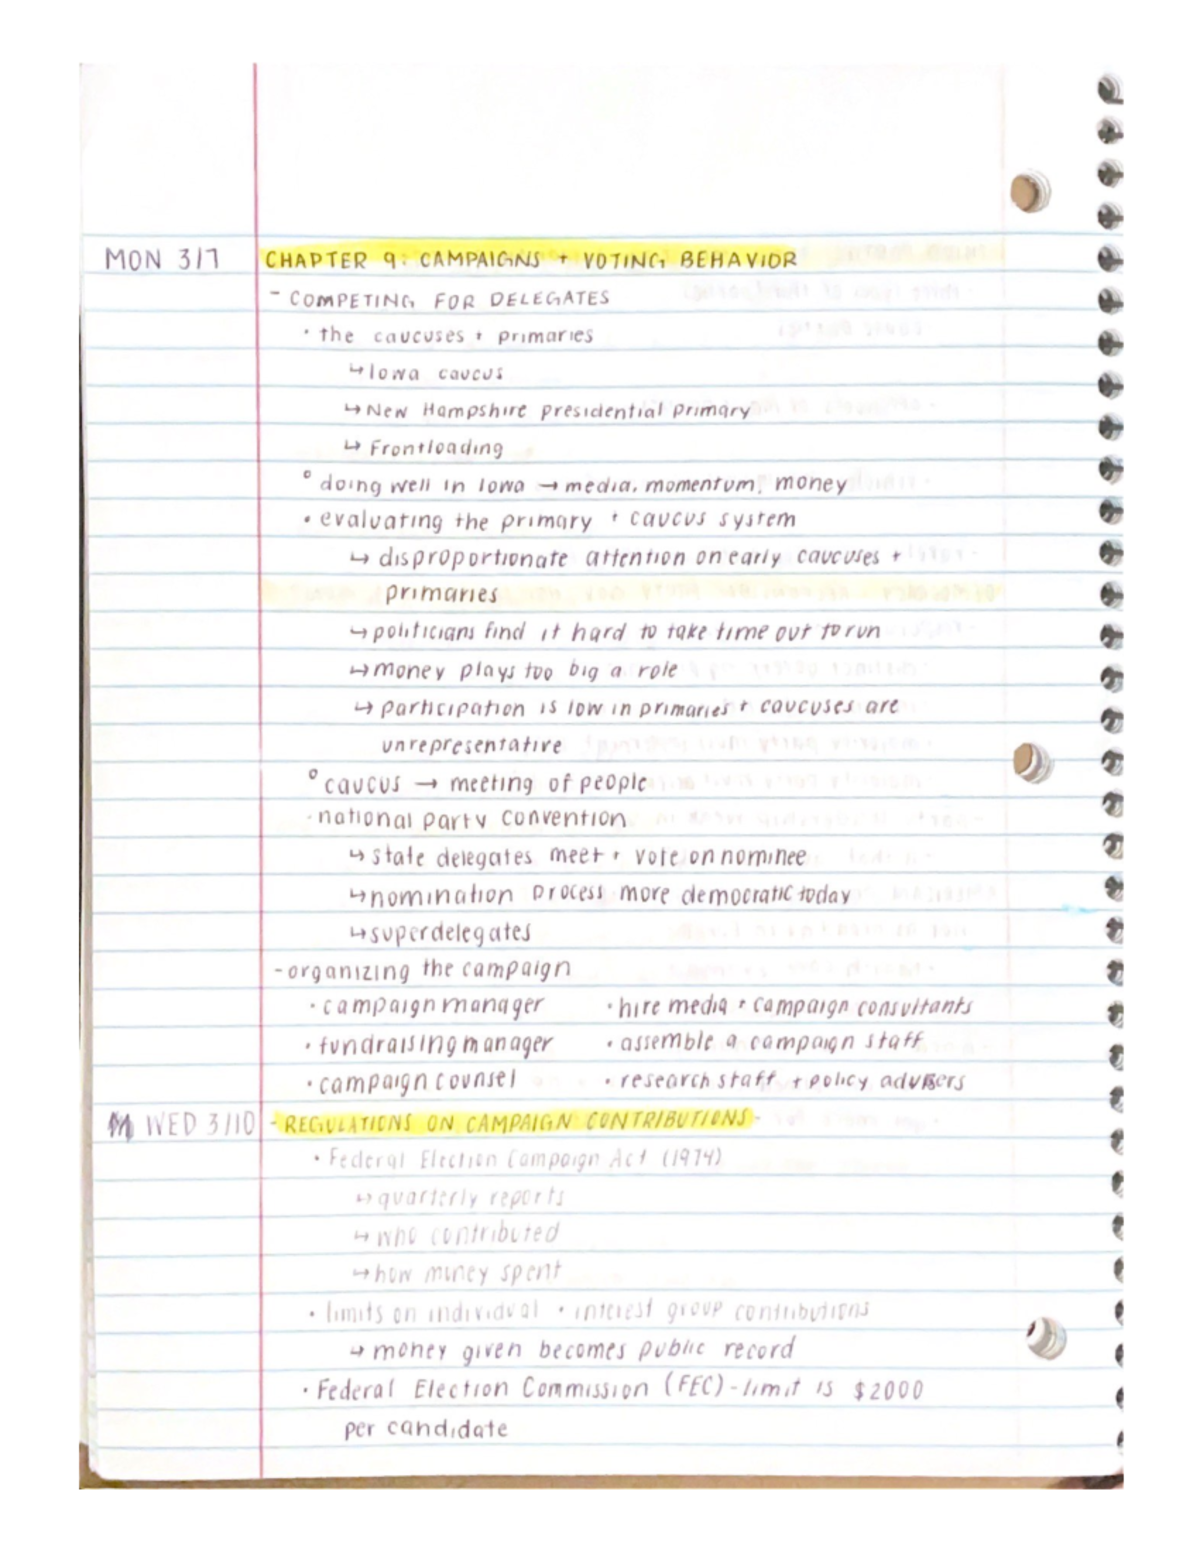 MON 3/7 CHAPTER 9: CAMPAIGNS + VOTING BEHAVIOR
- COMPETING FOR DELEGATES
• the caucuses + primaries
↳ Iowa caucus
↳ New Hampshire presidential primary
↳ Frontloading
° doing well in Iowa → media, momentum, money
• evaluating the primary + caucus system
↳ disproportionate attention on early caucuses +
primaries
↳ politicians find it hard to take time out to run
↳ money plays too big a role
↳ participation is low in primaries + caucuses are
unrepresentative
° caucus → meeting of people
• national party convention
↳ state delegates meet + vote on nominee
↳ nomination process more democratic today
↳ superdelegates
- organizing the campaign
• campaign manager • hire media + campaign consultants
• fundraising manager • assemble a campaign staff
• campaign counsel • research staff + policy advisers
WED 3/10 - REGULATIONS ON CAMPAIGN CONTRIBUTIONS -
• Federal Election Campaign Act (1974)
↳ quarterly reports
↳ who contributed
↳ how money spent
• limits on individual + interest group contributions
↳ money given becomes public record
• Federal Election Commission (FEC) - limit is $2000
per candidate